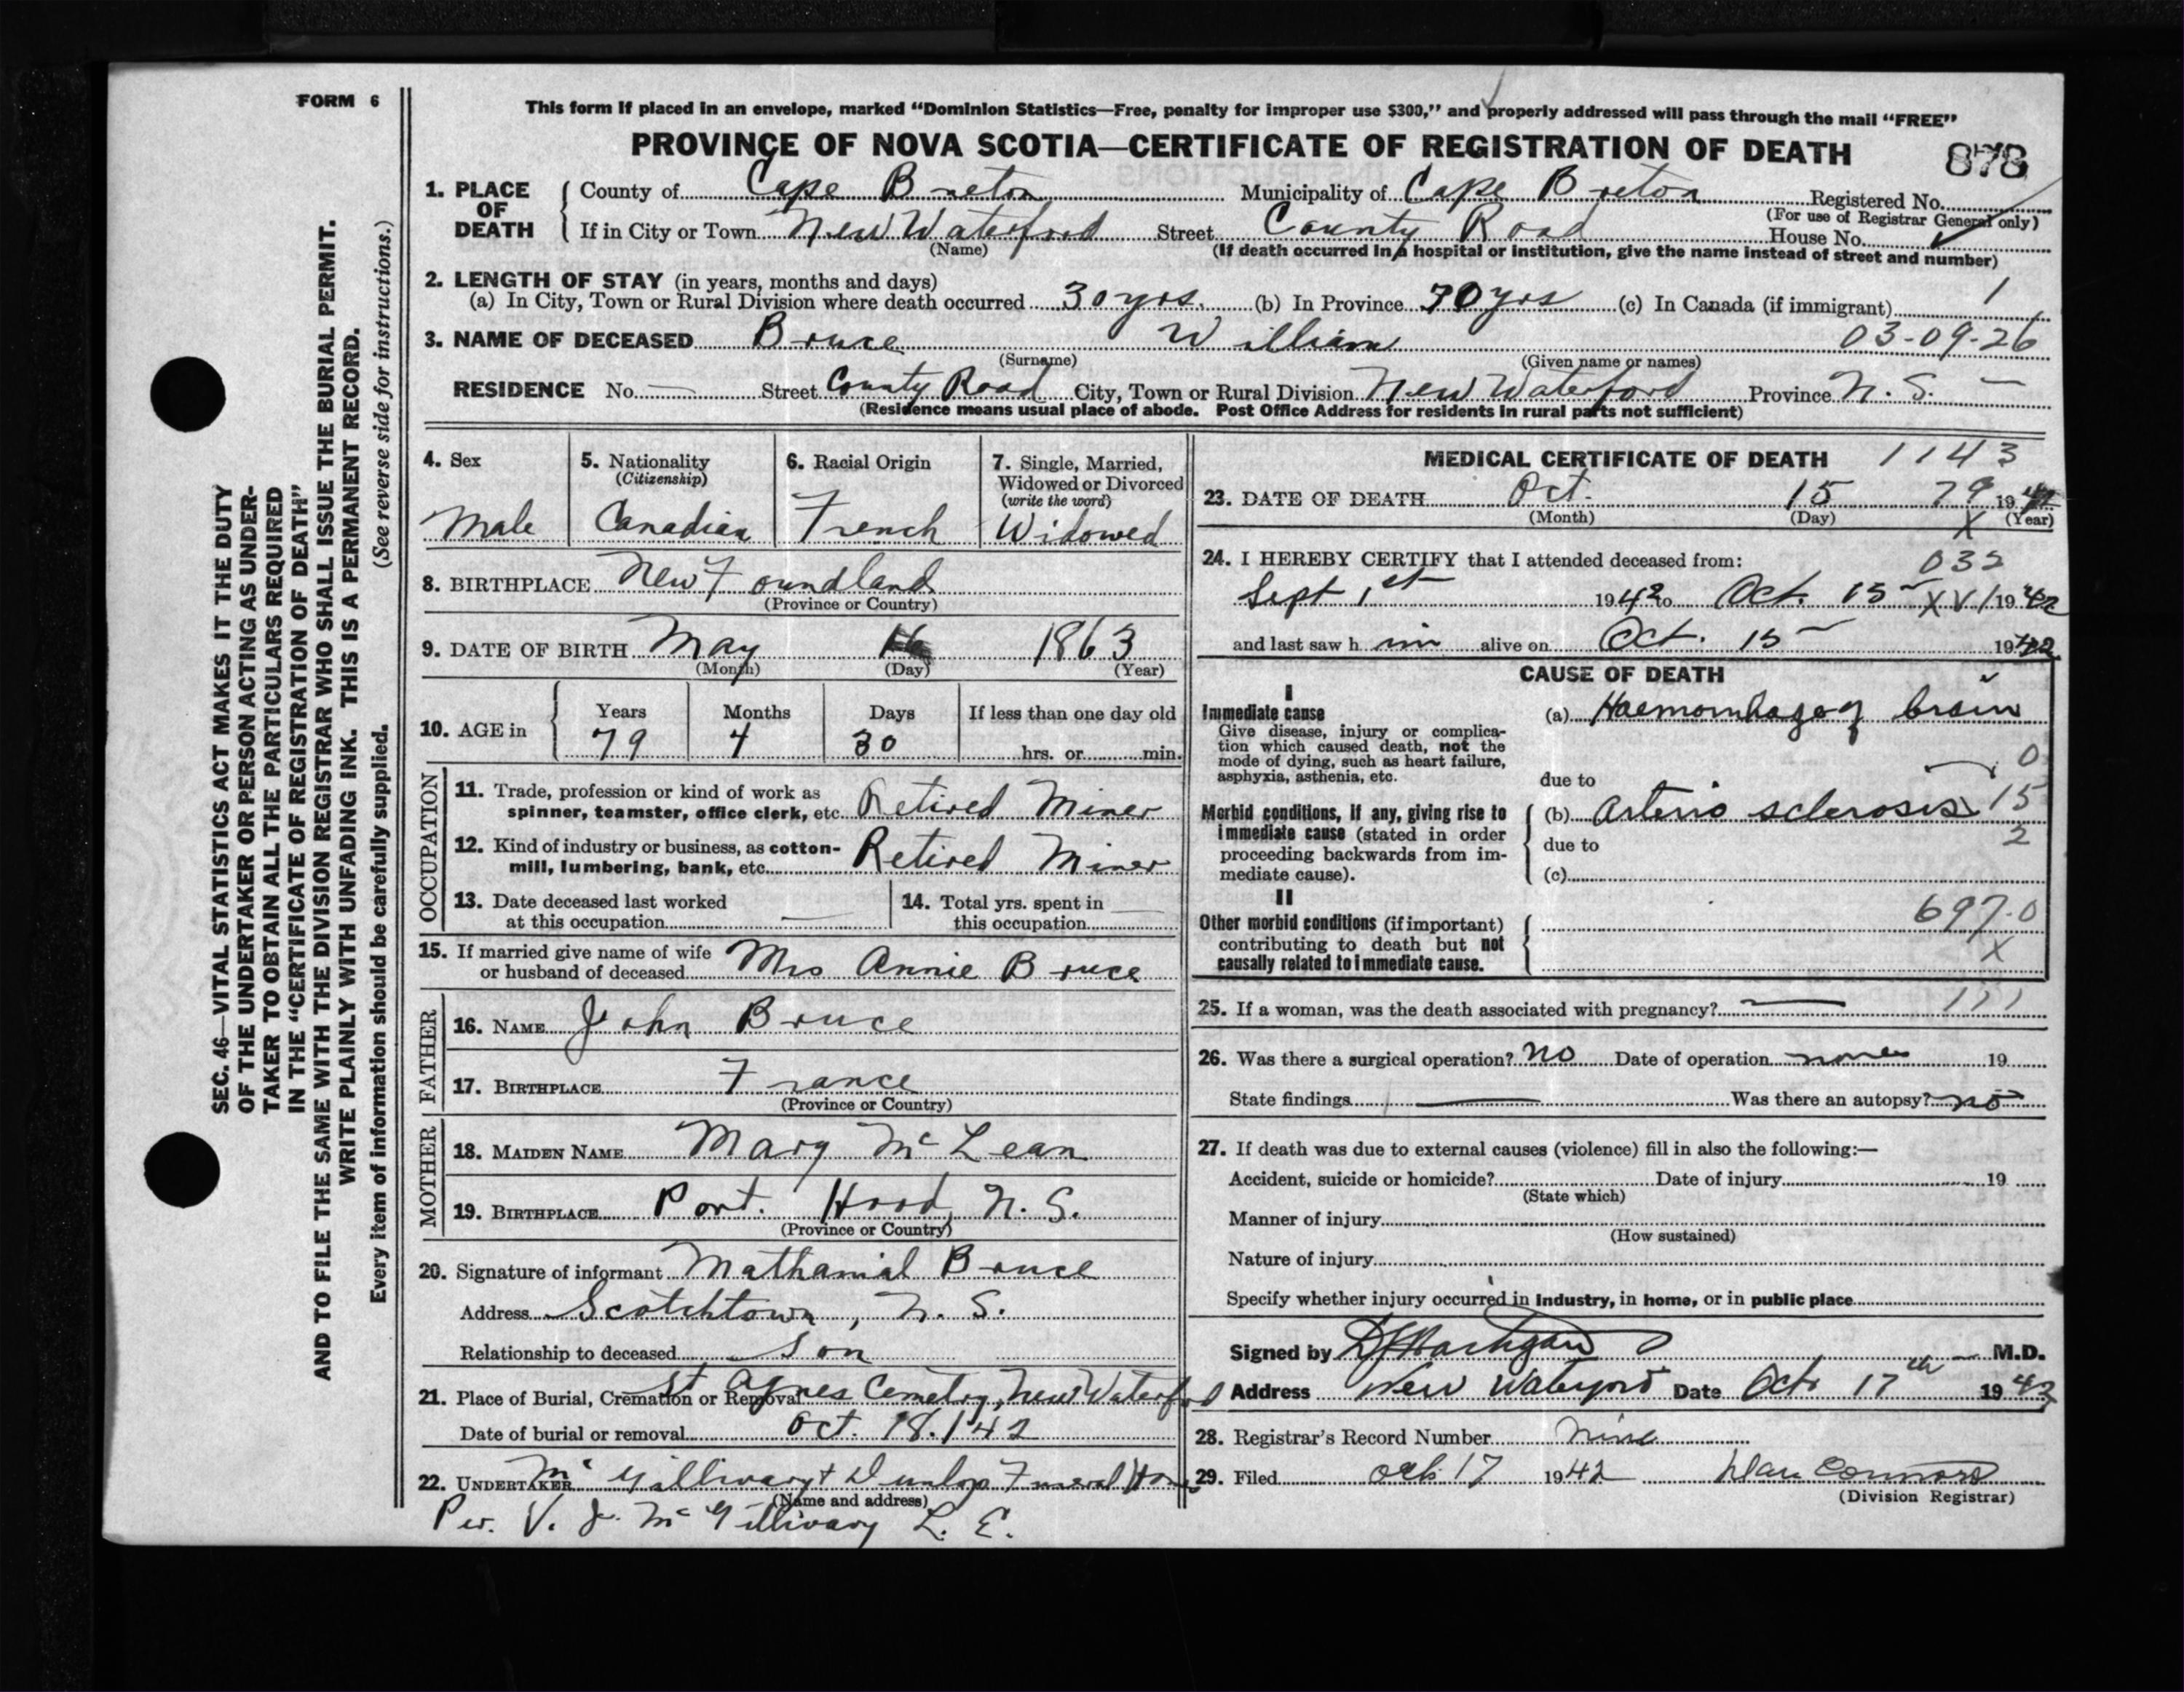 FORM 6
This form if placed in an envelope, marked “Dominion Statistics—Free, penalty for improper use $300,” and properly addressed will pass through the mail “FREE”
PROVINCE OF NOVA SCOTIA—CERTIFICATE OF REGISTRATION OF DEATH
878
SEC. 46—VITAL STATISTICS ACT MAKES IT THE DUTY
OF THE UNDERTAKER OR PERSON ACTING AS UNDER-
TAKER TO OBTAIN ALL THE PARTICULARS REQUIRED
IN THE “CERTIFICATE OF REGISTRATION OF DEATH”
AND TO FILE THE SAME WITH THE DIVISION REGISTRAR WHO SHALL ISSUE THE BURIAL PERMIT.
WRITE PLAINLY WITH UNFADING INK. THIS IS A PERMANENT RECORD.
Every item of information should be carefully supplied. (See reverse side for instructions.)
1. PLACE OF DEATH
County of Cape Breton Municipality of Cape Breton Registered No.
(For use of Registrar General only)
If in City or Town New Waterford Street County Road House No.
(Name) (If death occurred in a hospital or institution, give the name instead of street and number)
2. LENGTH OF STAY (in years, months and days)
(a) In City, Town or Rural Division where death occurred 30 yrs. (b) In Province 70 yrs (c) In Canada (if immigrant) 1
3. NAME OF DECEASED Bruce William 03-09-26
(Surname) (Given name or names)
RESIDENCE No. — Street County Road City, Town or Rural Division New Waterford Province N. S. —
(Residence means usual place of abode. Post Office Address for residents in rural parts not sufficient)
4. Sex
Male
5. Nationality
(Citizenship)
Canadian
6. Racial Origin
French
7. Single, Married,
Widowed or Divorced
(write the word)
Widowed
8. BIRTHPLACE New Foundland
(Province or Country)
9. DATE OF BIRTH May 16 1863
(Month) (Day) (Year)
10. AGE in
Years Months Days If less than one day old
79 4 30 hrs. or min.
OCCUPATION
11. Trade, profession or kind of work as
spinner, teamster, office clerk, etc. Retired Miner
12. Kind of industry or business, as cotton-
mill, lumbering, bank, etc. Retired Miner
13. Date deceased last worked
at this occupation —
14. Total yrs. spent in
this occupation —
15. If married give name of wife
or husband of deceased Mrs Annie Bruce
FATHER
16. NAME John Bruce
17. BIRTHPLACE France
(Province or Country)
MOTHER
18. MAIDEN NAME Mary McLean
19. BIRTHPLACE Port. Hood, N. S.
(Province or Country)
20. Signature of informant Mathanial Bruce
Address Scotchtown, N. S.
Relationship to deceased Son
21. Place of Burial, Cremation or Removal St Agnes Cemetry, New Waterford
Date of burial or removal Oct. 18. 1942
22. UNDERTAKER McGillivary + Dunlop Funeral Home
(Name and address)
Per. V. J. McGillivary L. E.
MEDICAL CERTIFICATE OF DEATH 1143
23. DATE OF DEATH Oct. 15 79 1942
(Month) (Day) X (Year)
24. I HEREBY CERTIFY that I attended deceased from: 032
Sept 1st 1942 to Oct. 15 XVI 1942
and last saw him alive on Oct. 15 1942
CAUSE OF DEATH
I
Immediate cause
Give disease, injury or complica-
tion which caused death, not the
mode of dying, such as heart failure,
asphyxia, asthenia, etc.
(a) Haemorrhage of brain
0
due to
Morbid conditions, if any, giving rise to
immediate cause (stated in order
proceeding backwards from im-
mediate cause).
(b) Arterio sclerosis 15
due to 2
(c)
II
Other morbid conditions (if important)
contributing to death but not
causally related to immediate cause.
697.0
X
25. If a woman, was the death associated with pregnancy? — 111
26. Was there a surgical operation? no Date of operation none 19
State findings — Was there an autopsy? no
27. If death was due to external causes (violence) fill in also the following:—
Accident, suicide or homicide? Date of injury 19
(State which)
Manner of injury
(How sustained)
Nature of injury
Specify whether injury occurred in industry, in home, or in public place
Signed by M.D.
Address New Waterford Date Oct 17th 1942
28. Registrar's Record Number Nine
29. Filed Oct 17 1942 Dan Connors
(Division Registrar)